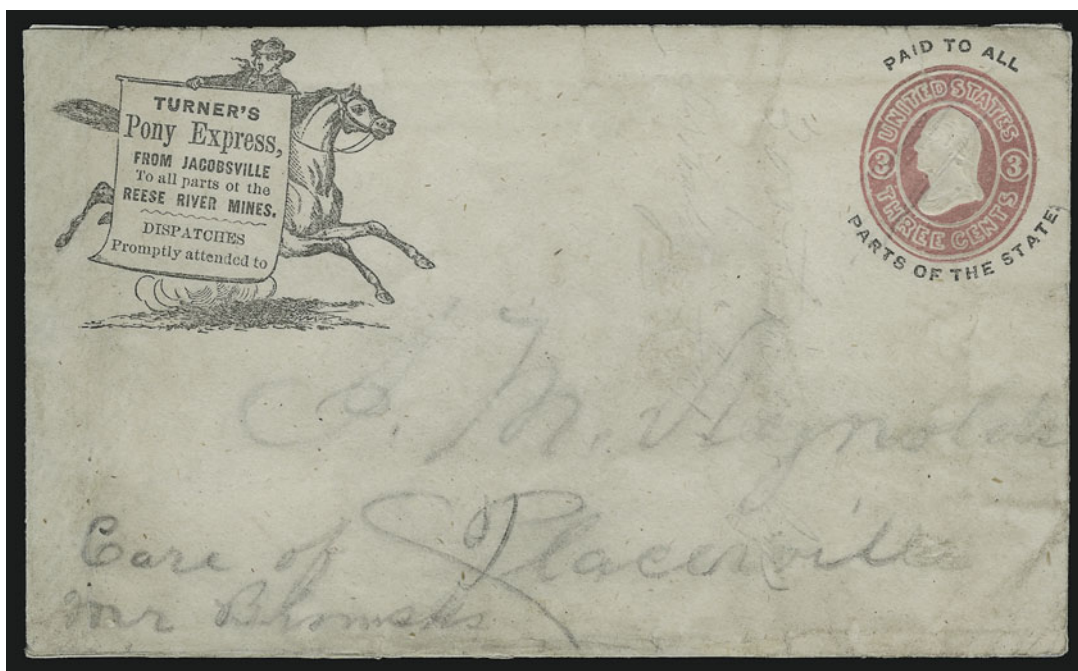 TURNER'S
Pony Express,
FROM JACOBSVILLE
To all parts of the
REESE RIVER MINES.
DISPATCHES
Promptly attended to
PAID TO ALL
UNITED STATES
3 3
THREE CENTS
PARTS OF THE STATE.
M. Reynolds
Placerville
Care of
Mr